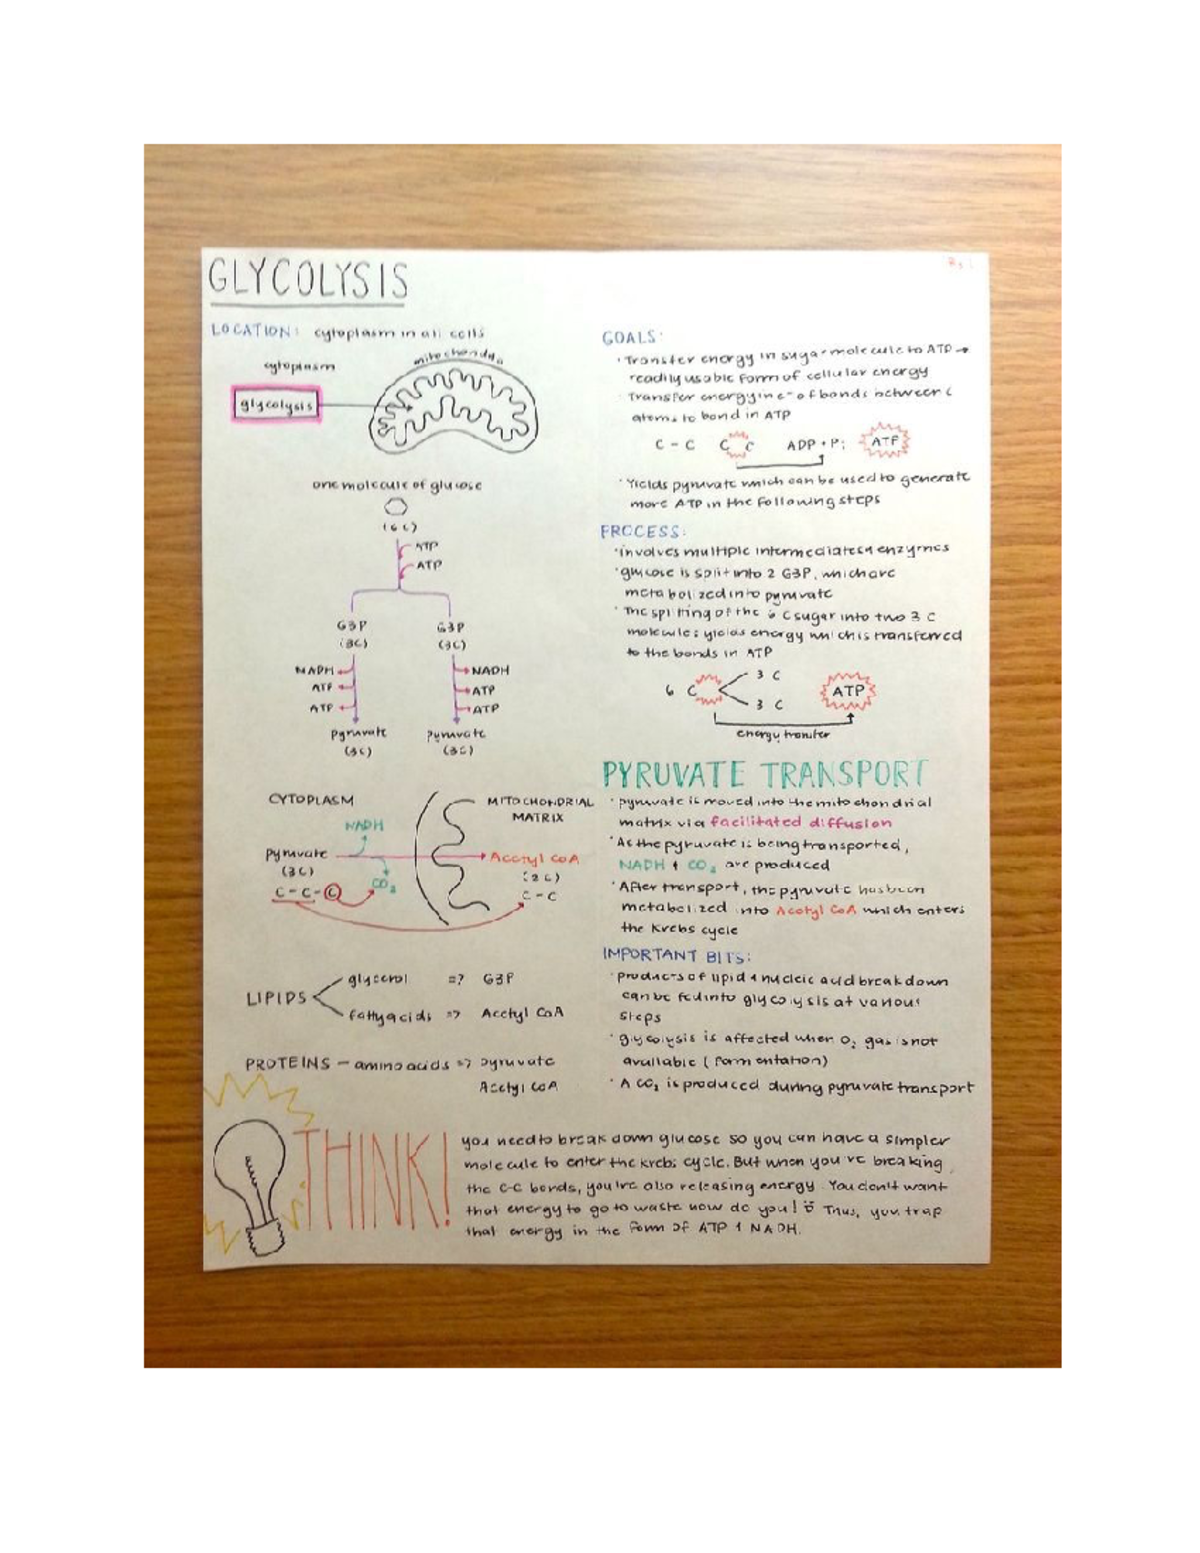 GLYCOLYSIS
LOCATION: cytoplasm in all cells
cytoplasm
mitochondria
glycolysis
one molecule of glucose
(6C)
ATP
ATP
G3P G3P
(3C) (3C)
NADH NADH
ATP ATP
ATP ATP
pyruvate pyruvate
(3C) (3C)
CYTOPLASM MITOCHONDRIAL
MATRIX
NADH
pyruvate Acetyl CoA
(3C) (2C)
CO2
C-C-C C-C
LIPIDS
glycerol => G3P
fatty acids => Acetyl CoA
PROTEINS - amino acids => pyruvate
Acetyl CoA
GOALS:
· Transfer energy in sugar molecule to ATP →
readily usable form of cellular energy
Transfer energy in e- of bonds between C
atoms to bond in ATP
C - C C C ADP + Pi ATP
· Yields pyruvate which can be used to generate
more ATP in the following steps
PROCESS:
· involves multiple intermediates & enzymes
· glucose is split into 2 G3P, which are
metabolized into pyruvate
· The splitting of the 6 C sugar into two 3 C
molecules yields energy which is transferred
to the bonds in ATP
6 C 3 C ATP
3 C
energy transfer
PYRUVATE TRANSPORT
· pyruvate is moved into the mitochondrial
matrix via facilitated diffusion
· As the pyruvate is being transported,
NADH + CO2 are produced
· After transport, the pyruvate has been
metabolized into Acetyl CoA which enters
the Krebs cycle
IMPORTANT BITS:
· products of lipid & nucleic acid breakdown
can be fed into glycolysis at various
steps
· glycolysis is affected when O2 gas is not
available (fermentation)
· A CO2 is produced during pyruvate transport
THINK!
you need to break down glucose so you can have a simpler
molecule to enter the Krebs cycle. But when you're breaking
the C-C bonds, you're also releasing energy. You don't want
that energy to go to waste now do you! Thus, you trap
that energy in the form of ATP & NADH.